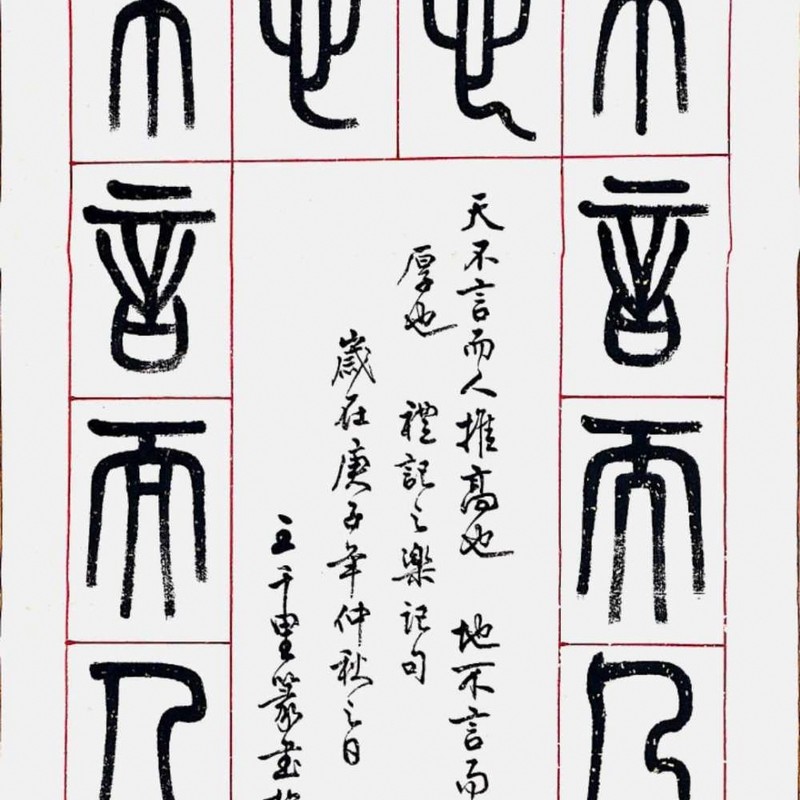 不言而人
也
天不言而人推高也 地不言而
厚也 禮記之樂記句
歲在庚子年仲秋之日
王千里篆書
也
不言而人